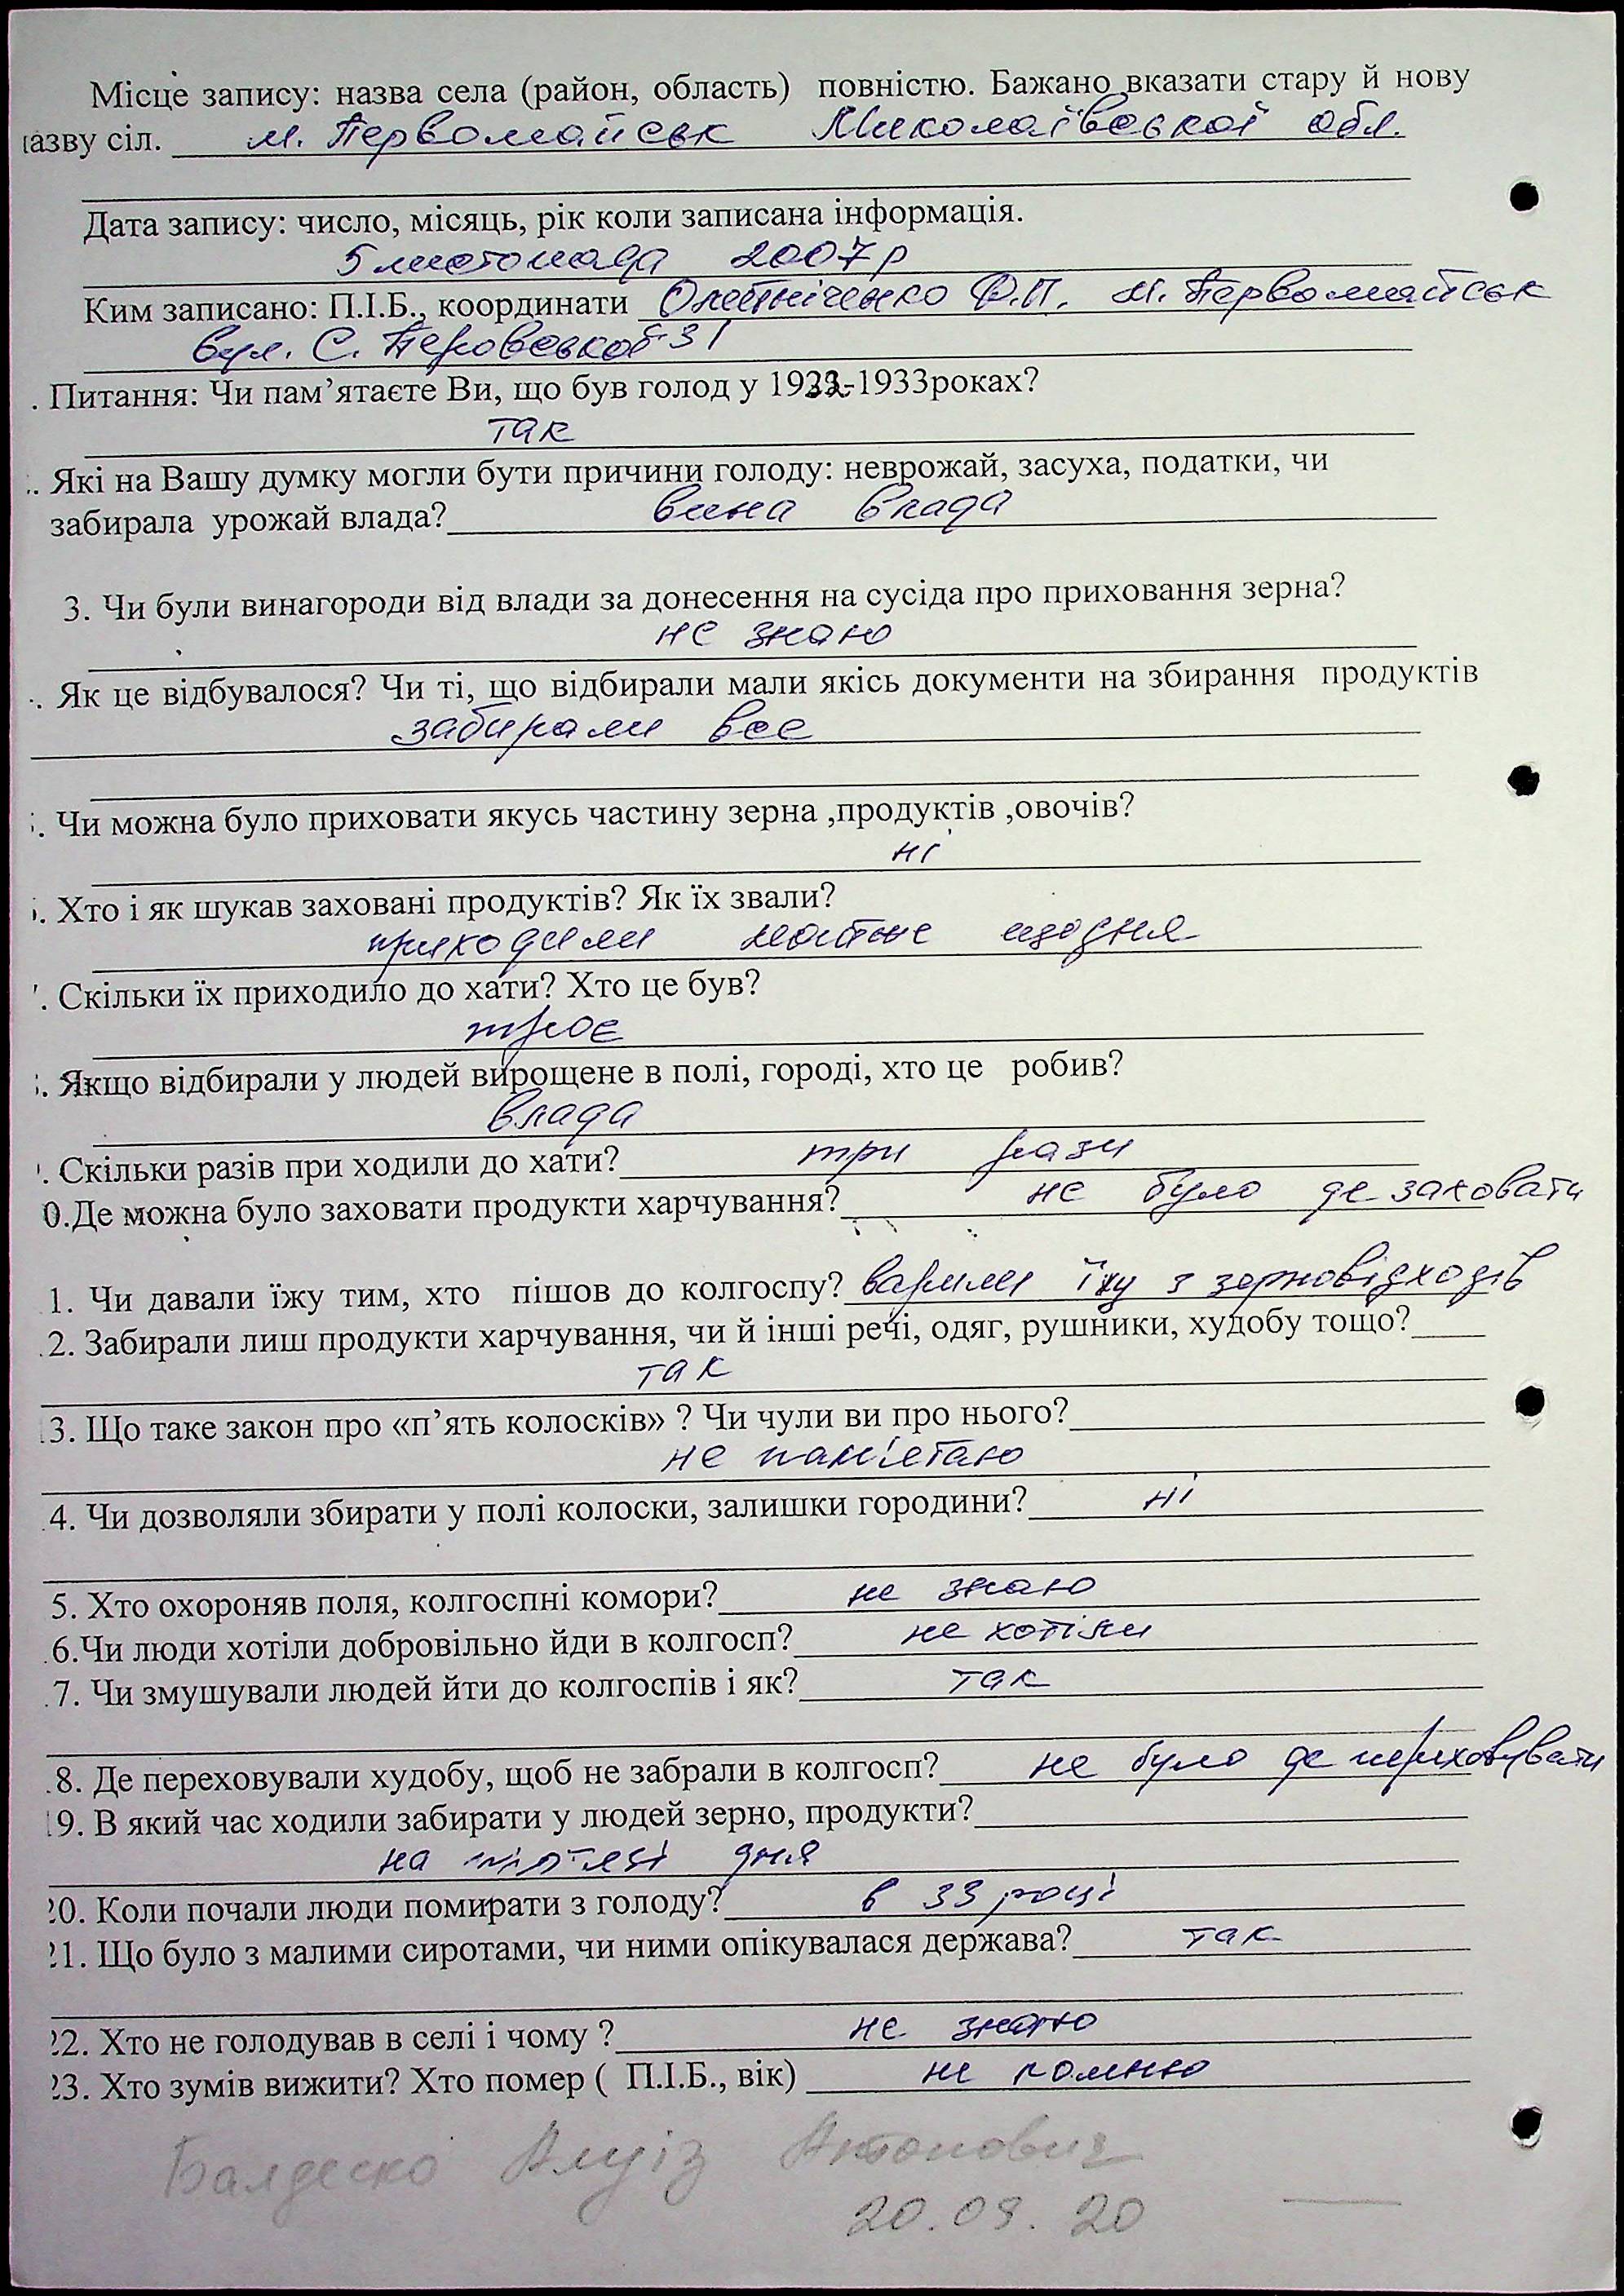 Місце запису: назва села (район, область) повністю. Бажано вказати стару й нову
азву сіл. м. Первомайськ Миколаївської обл.
Дата запису: число, місяць, рік коли записана інформація.
5 листопада 2007 р
Ким записано: П.І.Б., координати Олейніченко Ф.П. м. Первомайськ
вул. С. Перовської 31
. Питання: Чи пам’ятаєте Ви, що був голод у 1932-1933роках?
так
. Які на Вашу думку могли бути причини голоду: неврожай, засуха, податки, чи
забирала урожай влада? вина влада
3. Чи були винагороди від влади за донесення на сусіда про приховання зерна?
не знаю
. Як це відбувалося? Чи ті, що відбирали мали якісь документи на збирання продуктів
забирали все
. Чи можна було приховати якусь частину зерна ,продуктів ,овочів?
ні
. Хто і як шукав заховані продуктів? Як їх звали?
приходили майже щодня
. Скільки їх приходило до хати? Хто це був?
троє
. Якщо відбирали у людей вирощене в полі, городі, хто це робив?
влада
. Скільки разів при ходили до хати? три рази
0.Де можна було заховати продукти харчування? не було де заховати
1. Чи давали їжу тим, хто пішов до колгоспу? варили їжу з зерновідходів
.2. Забирали лиш продукти харчування, чи й інші речі, одяг, рушники, худобу тощо?
так
3. Що таке закон про «п’ять колосків» ? Чи чули ви про нього?
не пам'ятаю
.4. Чи дозволяли збирати у полі колоски, залишки городини? ні
5. Хто охороняв поля, колгоспні комори? не знаю
.6.Чи люди хотіли добровільно йди в колгосп? не хотіли
.7. Чи змушували людей йти до колгоспів і як? так
.8. Де переховували худобу, щоб не забрали в колгосп? не було де переховувати
9. В який час ходили забирати у людей зерно, продукти?
на протязі дня
20. Коли почали люди помирати з голоду? в 33 році
21. Що було з малими сиротами, чи ними опікувалася держава? так
22. Хто не голодував в селі і чому ? не знаю
23. Хто зумів вижити? Хто помер ( П.І.Б., вік) не помню
Балдеско Алуіз Антонович
20.09.20